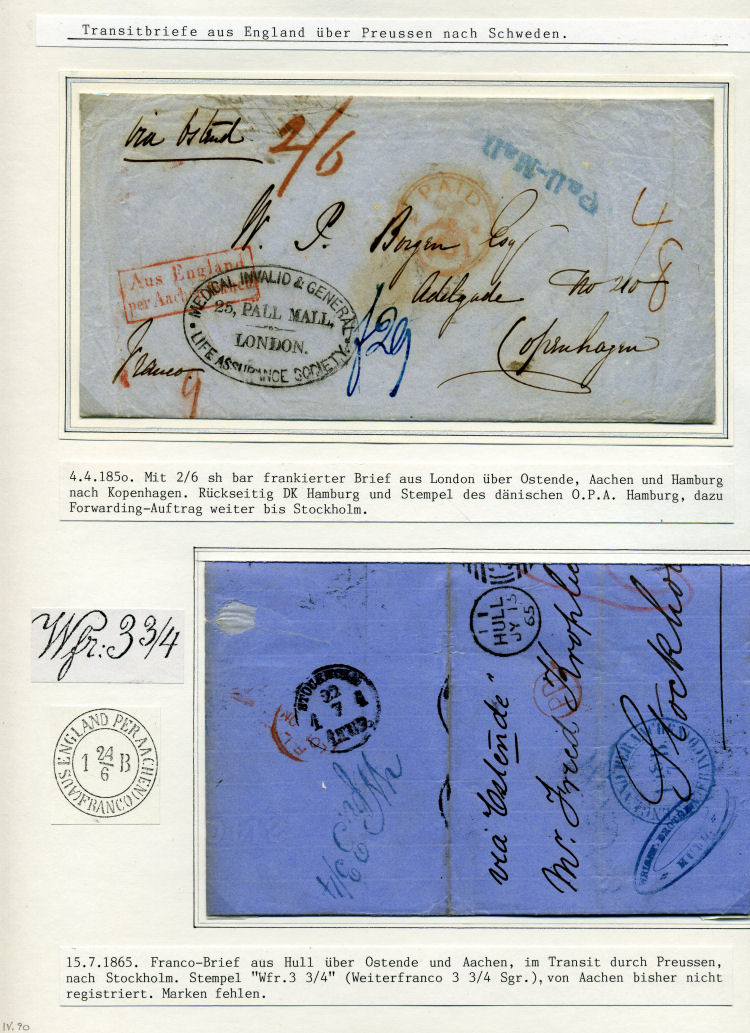 Transitbriefe aus England über Preussen nach Schweden.
via Ostend
2/6
Pall-Mall
PAID
W. P. Borgen Esq
4/8
Aus England
per Aachen
Adelgade No 210
MEDICAL INVALID & GENERAL
25, PALL MALL,
LONDON.
LIFE ASSURANCE SOCIETY.
Copenhagen
Franco
f29
9
4.4.185o. Mit 2/6 sh bar frankierter Brief aus London über Ostende, Aachen und Hamburg
nach Kopenhagen. Rückseitig DK Hamburg und Stempel des dänischen O.P.A. Hamburg, dazu
Forwarding-Auftrag weiter bis Stockholm.
Wfr: 3 3/4
ENGLAND PER AACHEN
1 24/6 B
AUS (FRANCO)
HULL
JY 15
65
22
7
PD
via Ostende"
Mr. Fried
Stockhol
Wfr: 3 3/4
HULL
15.7.1865. Franco-Brief aus Hull über Ostende und Aachen, im Transit durch Preussen,
nach Stockholm. Stempel "Wfr.3 3/4" (Weiterfranco 3 3/4 Sgr.), von Aachen bisher nicht
registriert. Marken fehlen.
IV.90